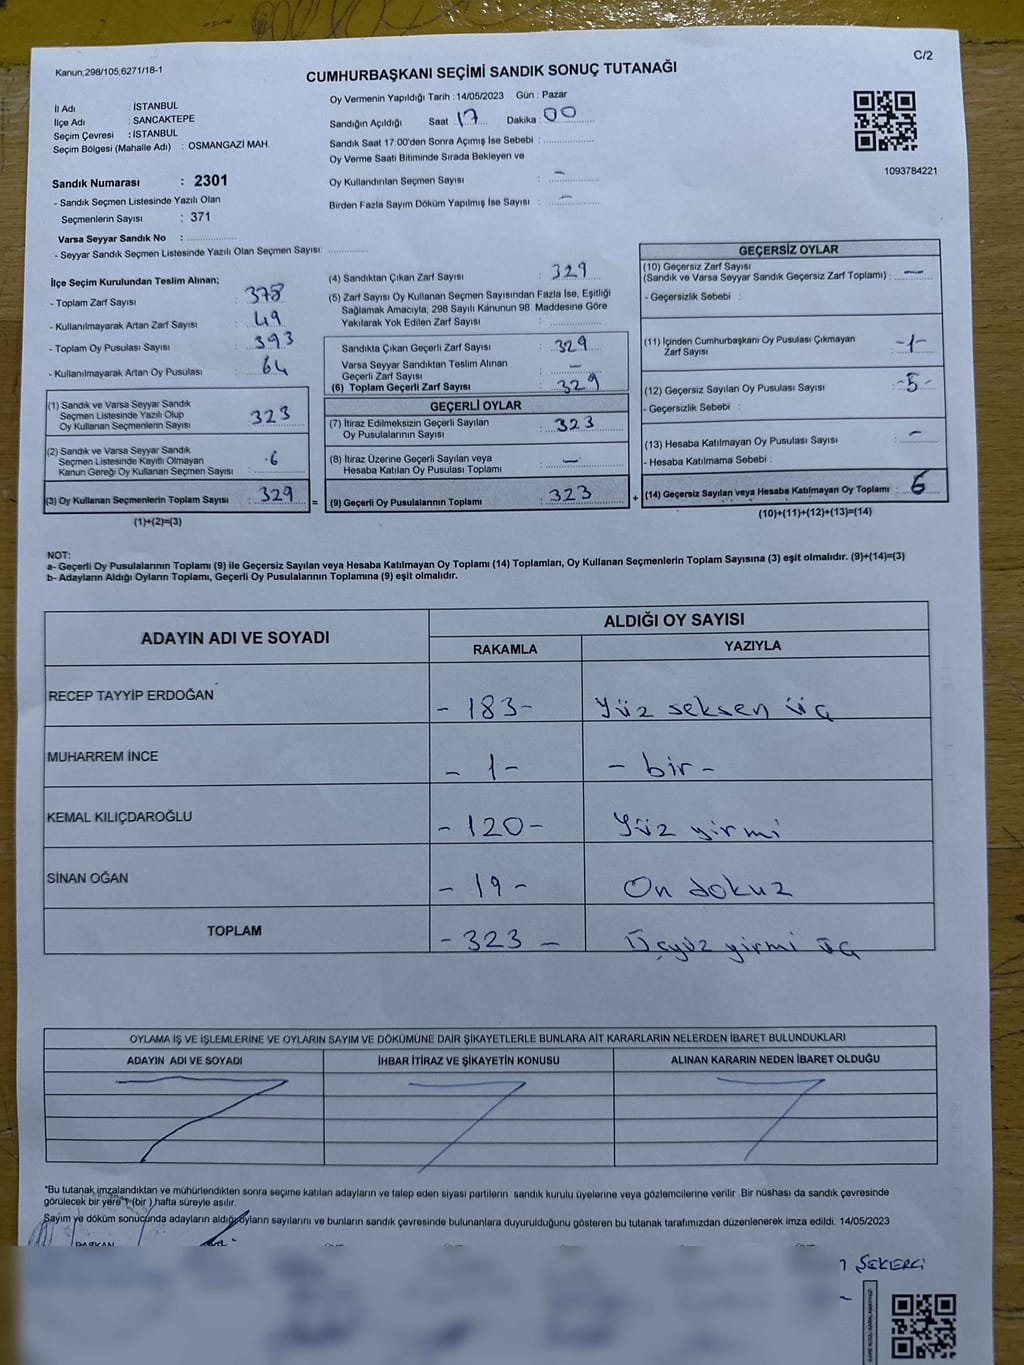 Kanun;298/105;6271/18-1
C/2
CUMHURBAŞKANI SEÇİMİ SANDIK SONUÇ TUTANAĞI
İl Adı : İSTANBUL
İlçe Adı : SANCAKTEPE
Seçim Çevresi : İSTANBUL
Seçim Bölgesi (Mahalle Adı) : OSMANGAZİ MAH.
Sandık Numarası : 2301
- Sandık Seçmen Listesinde Yazılı Olan
Seçmenlerin Sayısı : 371
Varsa Seyyar Sandık No :
- Seyyar Sandık Seçmen Listesinde Yazılı Olan Seçmen Sayısı:
Oy Vermenin Yapıldığı Tarih : 14/05/2023 Gün : Pazar
Sandığın Açıldığı Saat 17 Dakika 00
Sandık Saat 17:00'den Sonra Açımış İse Sebebi :
Oy Verme Saati Bitiminde Sırada Bekleyen ve
Oy Kullandırılan Seçmen Sayısı : -
Birden Fazla Sayım Döküm Yapılmış İse Sayısı : -
1093784221
İlçe Seçim Kurulundan Teslim Alınan;
- Toplam Zarf Sayısı : 378
- Kullanılmayarak Artan Zarf Sayısı : 49
- Toplam Oy Pusulası Sayısı : 393
- Kullanılmayarak Artan Oy Pusulası : 64
(1) Sandık ve Varsa Seyyar Sandık
Seçmen Listesinde Yazılı Olup
Oy Kullanan Seçmenlerin Sayısı : 323
(2) Sandık ve Varsa Seyyar Sandık
Seçmen Listesinde Kayıtlı Olmayan
Kanun Gereği Oy Kullanan Seçmen Sayısı : 6
(3) Oy Kullanan Seçmenlerin Toplam Sayısı : 329 =
(1)+(2)=(3)
(4) Sandıktan Çıkan Zarf Sayısı : 329
(5) Zarf Sayısı Oy Kullanan Seçmen Sayısından Fazla İse, Eşitliği
Sağlamak Amacıyla; 298 Sayılı Kanunun 98. Maddesine Göre
Yakılarak Yok Edilen Zarf Sayısı :
Sandıkta Çıkan Geçerli Zarf Sayısı : 329
Varsa Seyyar Sandıktan Teslim Alınan
Geçerli Zarf Sayısı : -
(6) Toplam Geçerli Zarf Sayısı : 329
GEÇERLİ OYLAR
(7) İtiraz Edilmeksizin Geçerli Sayılan
Oy Pusulalarının Sayısı : 323
(8) İtiraz Üzerine Geçerli Sayılan veya
Hesaba Katılan Oy Pusulası Toplamı : -
(9) Geçerli Oy Pusulalarının Toplamı : 323 +
GEÇERSİZ OYLAR
(10) Geçersiz Zarf Sayısı
(Sandık ve Varsa Seyyar Sandık Geçersiz Zarf Toplamı) : -
- Geçersizlik Sebebi :
(11) İçinden Cumhurbaşkanı Oy Pusulası Çıkmayan
Zarf Sayısı : -1-
(12) Geçersiz Sayılan Oy Pusulası Sayısı : -5-
- Geçersizlik Sebebi :
(13) Hesaba Katılmayan Oy Pusulası Sayısı : -
- Hesaba Katılmama Sebebi :
(14) Geçersiz Sayılan veya Hesaba Katılmayan Oy Toplamı : 6
(10)+(11)+(12)+(13)=(14)
NOT:
a- Geçerli Oy Pusulalarının Toplamı (9) ile Geçersiz Sayılan veya Hesaba Katılmayan Oy Toplamı (14) Toplamları, Oy Kullanan Seçmenlerin Toplam Sayısına (3) eşit olmalıdır. (9)+(14)=(3)
b- Adayların Aldığı Oyların Toplamı, Geçerli Oy Pusulalarının Toplamına (9) eşit olmalıdır.
ADAYIN ADI VE SOYADI
ALDIĞI OY SAYISI
RAKAMLA YAZIYLA
RECEP TAYYİP ERDOĞAN - 183 - Yüz seksen üç
MUHARREM İNCE - 1 - - bir -
KEMAL KILIÇDAROĞLU - 120 - Yüz yirmi
SİNAN OĞAN - 19 - On dokuz
TOPLAM - 323 - Üçyüz yirmi üç
OYLAMA İŞ VE İŞLEMLERİNE VE OYLARIN SAYIM VE DÖKÜMÜNE DAİR ŞİKAYETLERLE BUNLARA AİT KARARLARIN NELERDEN İBARET BULUNDUKLARI
ADAYIN ADI VE SOYADI İHBAR İTİRAZ VE ŞİKAYETİN KONUSU ALINAN KARARIN NEDEN İBARET OLDUĞU
*Bu tutanak imzalandıktan ve mühürlendikten sonra seçime katılan adayların ve talep eden siyasi partilerin sandık kurulu üyelerine veya gözlemcilerine verilir .Bir nüshası da sandık çevresinde
görülecek bir yere 1 (bir ) hafta süreyle asılır.
Sayım ve döküm sonucunda adayların aldığı oyların sayılarını ve bunların sandık çevresinde bulunanlara duyurulduğunu gösteren bu tutanak tarafımızdan düzenlenerek imza edildi. 14/05/2023
BAŞKAN
ŞEKERCİ